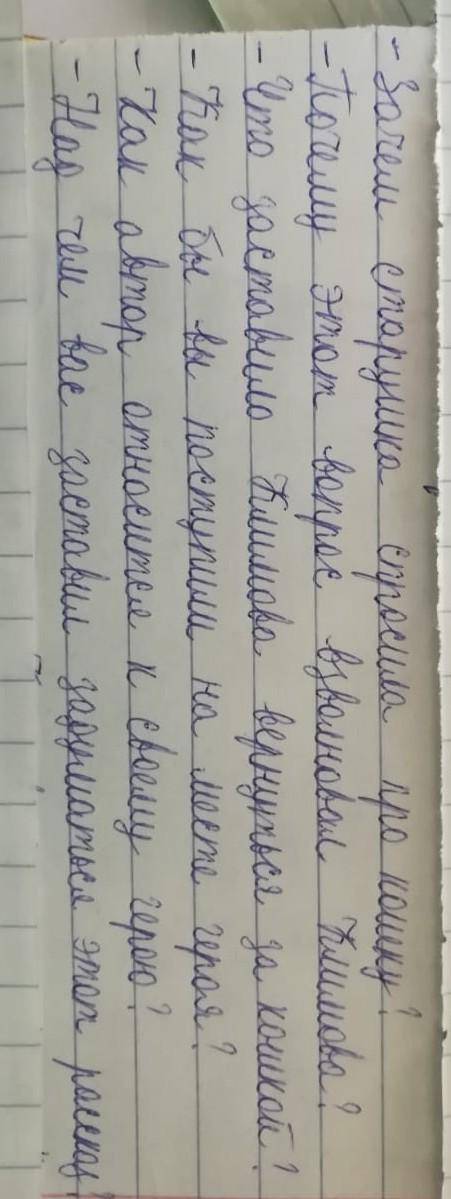 - Зачем старушка спросила про кошку?
- Почему этот вопрос взволновал Климова?
- Что заставило Климова вернуться за кошкой?
- Как бы вы поступили на месте героя?
- Как автор относится к своему герою?
- Над чем вас заставил задуматься этот рассказ?